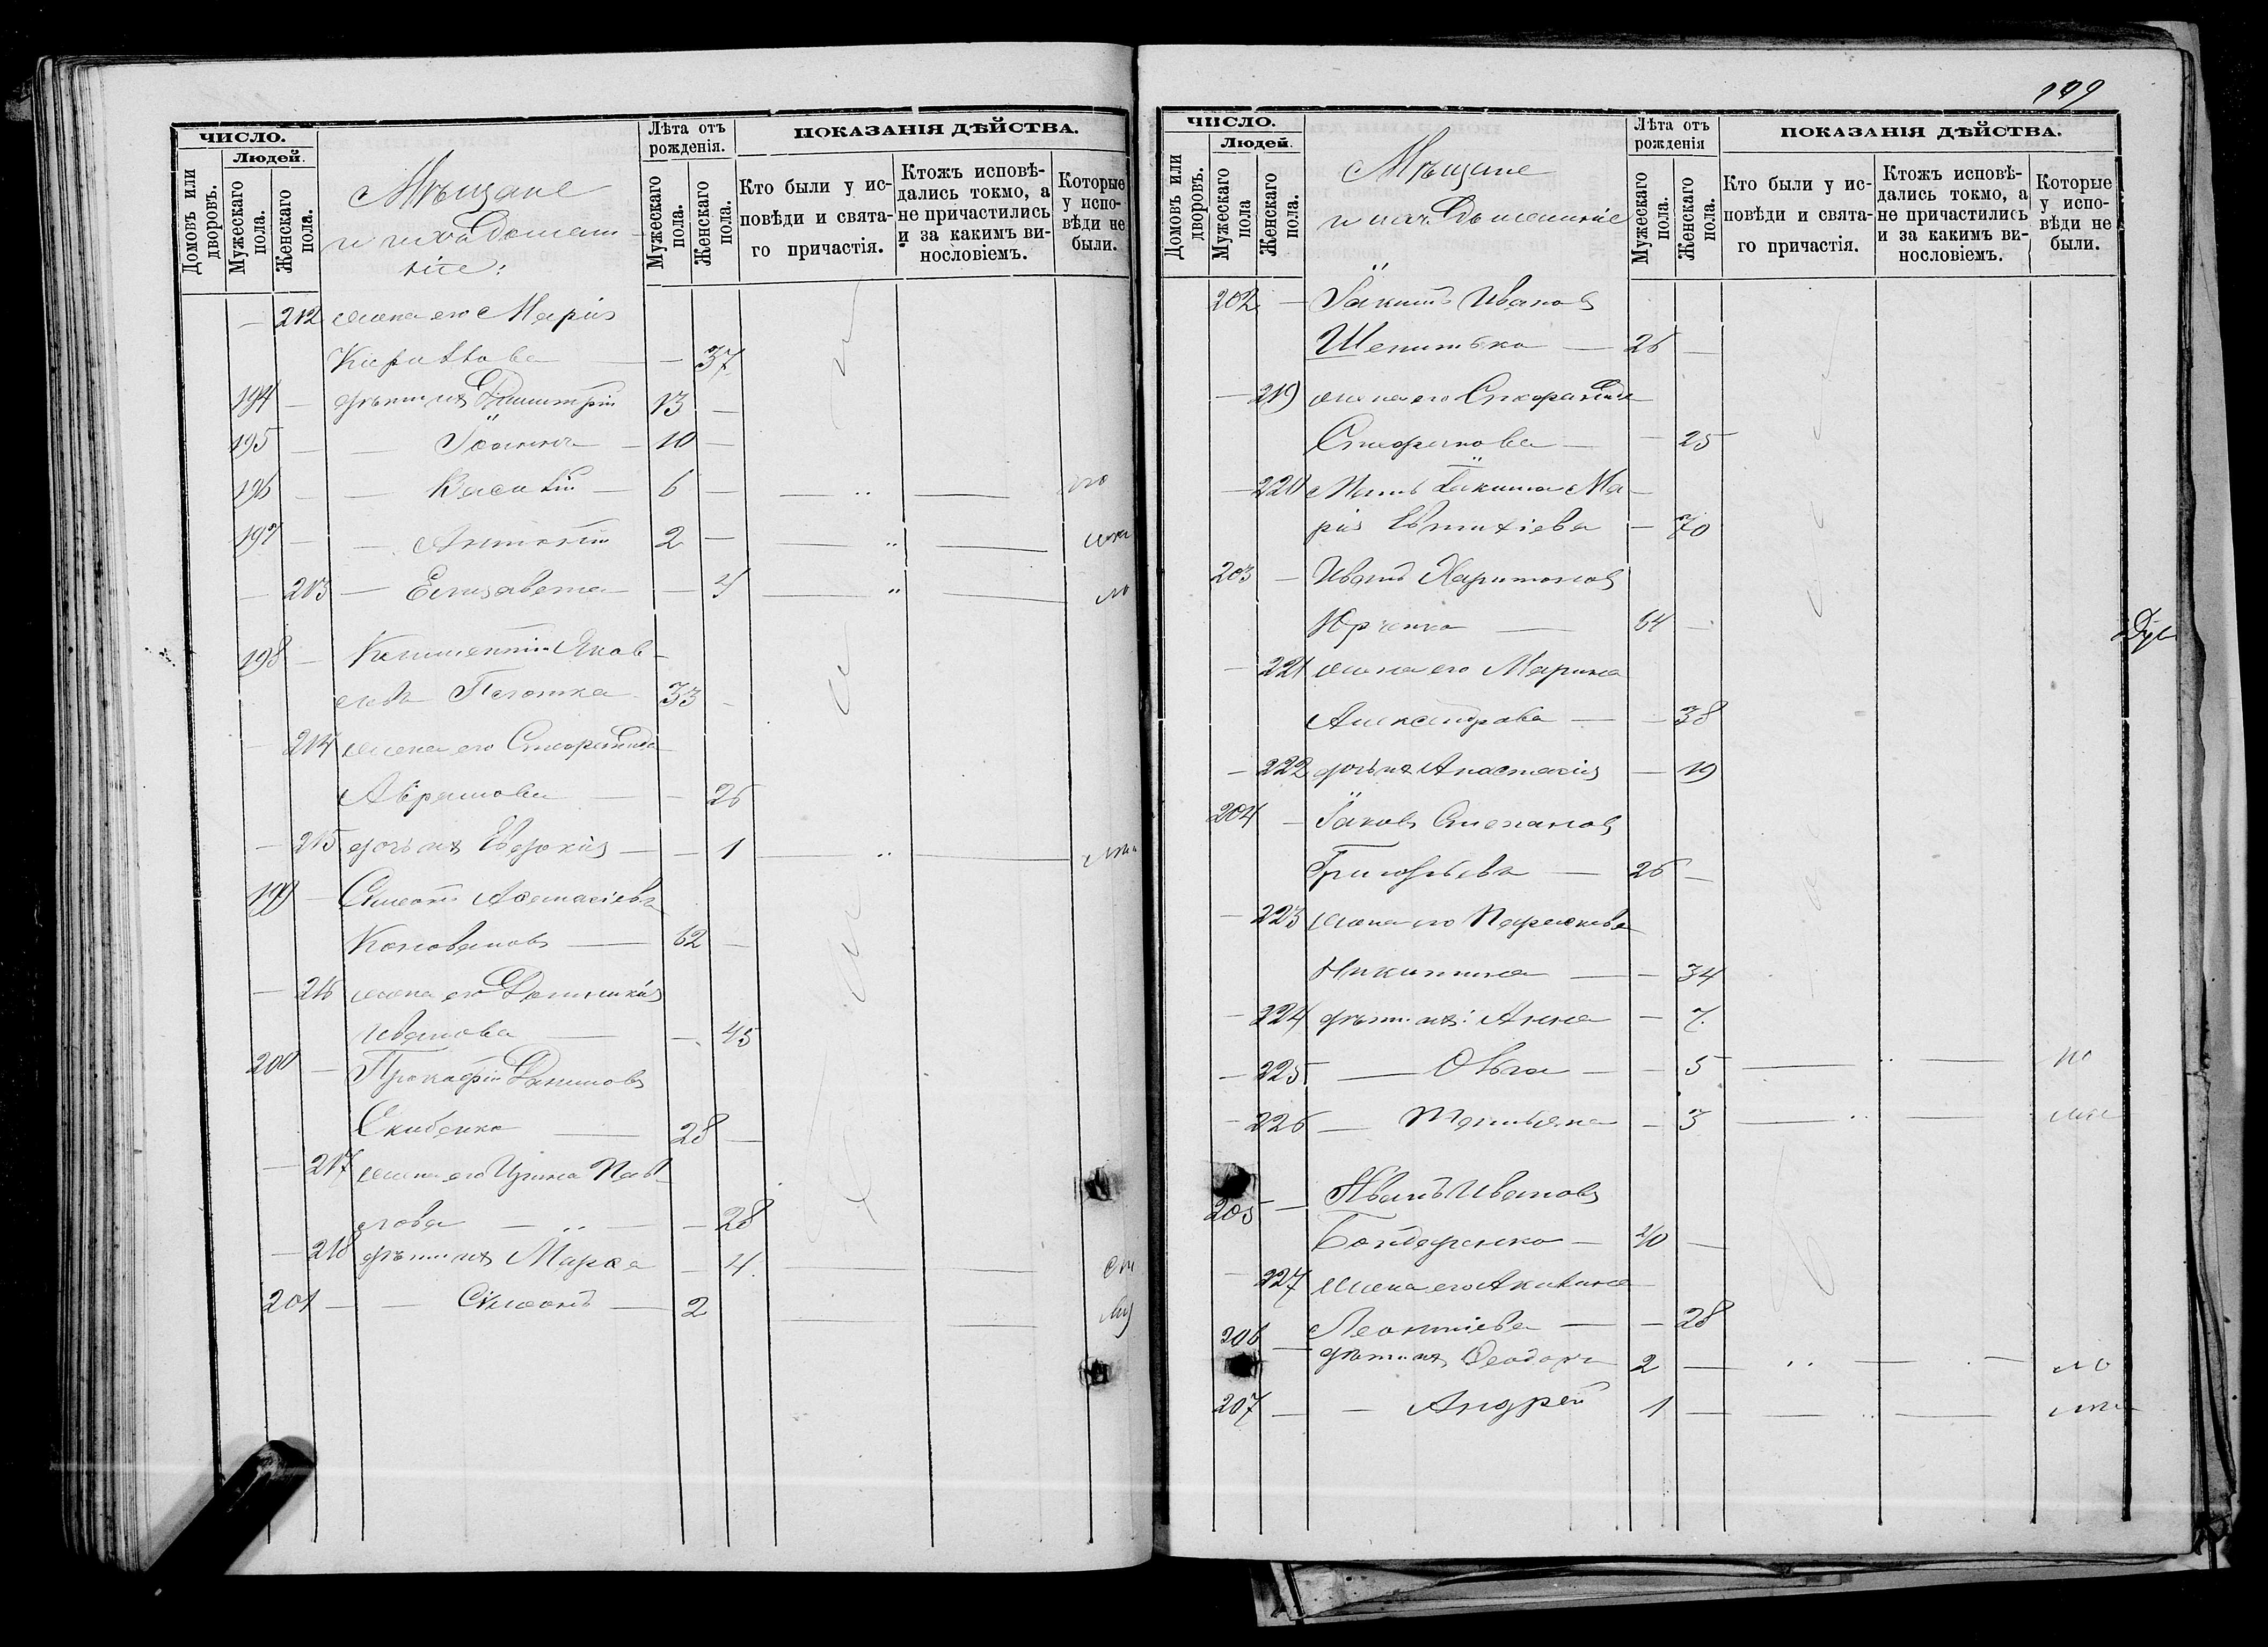 199
ЧИСЛО.
Людей.
Домовъ или дворовъ.
Мужескаго пола.
Женскаго пола.
Мѣщане
и ихъ домаш-
ніе:
Лѣта отъ рожденія.
Мужескаго пола.
Женскаго пола.
ПОКАЗАНІЯ ДѢЙСТВА.
Кто были у ис-
повѣди и свята-
го причастія.
Ктожъ исповѣ-
дались токмо, а
не причастились
и за какимъ ви-
нословіемъ.
Которые
у испо-
вѣди не
были.
— 212 жена его Марія
Кирилова — — 37
194 — дѣти ихъ Димитрій 13 —
195 — — Іоаннъ — 10 —
196 — — Василій — 6 —
197 — — Антоній 2 —
— 213 — Елисавета — — 4
198 — Климентій Яков-
левъ 33 —
214 жена его
Аврамова — — 26
— 215 дочь их Евдокія — — 1
199 — Симеонъ Афанасіевъ
Коноваловъ — 62 —
— 216 жена его
Иванова — — 45
200 — Прокофій Даниловъ
Скибенко — 28 —
— 217 жена его Ирина Пав-
лова — — 28
— 218 дѣти ихъ Марѳа — 4.
201 — — Симеонъ — 2
ЧИСЛО.
Людей.
Домовъ или дворовъ.
Мужескаго пола
Женскаго пола.
Мѣщане
и ихъ домашніе
Лѣта отъ рожденія
Мужескаго пола.
Женскаго пола.
ПОКАЗАНІЯ ДѢЙСТВА.
Кто были у ис-
повѣди и свята-
го причастія.
Ктожъ исповѣ-
дались токмо, а
не причастились
и за какимъ ви-
нословіемъ.
Которые
у испо-
вѣди не
были.
202 — Іакимъ Ивановъ
Шепитько — 26 —
— 219 жена его
Стефанова — — 25
— 220 Мать Іакима Ма-
рія Евтихіева — 70
203 — Иванъ Харитоновъ
Юрченко — 64 —
— 221 жена его Марина
Александрова — — 38
— 222 дочь их Анастасія — 19
204 — Іаковъ Степановъ
Григорьевъ — 26 —
— 223 жена его Параскева
Никитина — — 34
— 224 дѣти ихъ: Анна — 7.
— 225 — Ольга — — 5
— 226 — Татьяна — 3
205 — Иванъ Ивановъ
Бондаренко — 40 —
— 227 жена его Акилина
Леонтіева — — 28
206 — дѣти ихъ Ѳеодоръ 2 —
207 — — Андрей 1 —